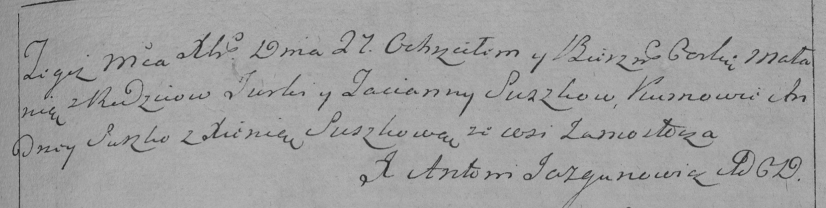 Tegoż Mca Xbr Dnia 27. Ochrzciłem y Bierzm Corkę Mała
nią z Rodzicow Jurki y Tacianny Suszkow, Kumowie An
drey Suszko z Xienią Suszkową ze wsi Zamostocza
X Antoni Jazgunowicz